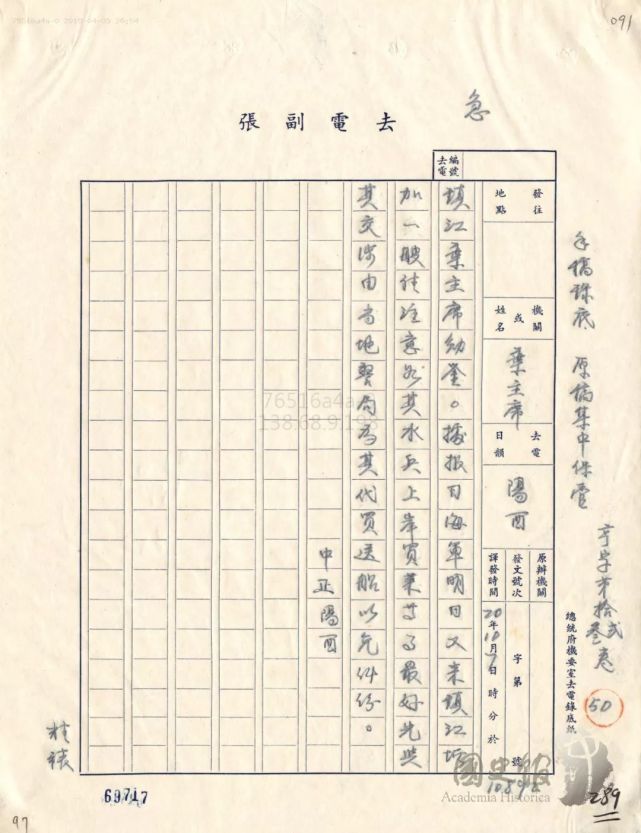 76516a4a-0 2019-04-05 20:54
091
急
去電副張
去電
編號
發往
地點
機關
或
姓名
葉主席
去電
日韻
陽酉
原辦機關
發文號次
字第 號
譯發時間
20年10月7日 時 分於
10892
鎮江葉主席勛鑒。據報日海軍明日又來鎮江
加一艘請注意然其水兵上岸買菜等事最好先與
其交涉由當地警局為其代買送船以免糾紛。
中正陽酉
手稿錄底 原稿集中保管
亨字第拾貳卷
叁
50
總統府機要室去電錄底紙
289
國史館
Academia Historica
76516a4a-0
138.68.9.198
69717
97